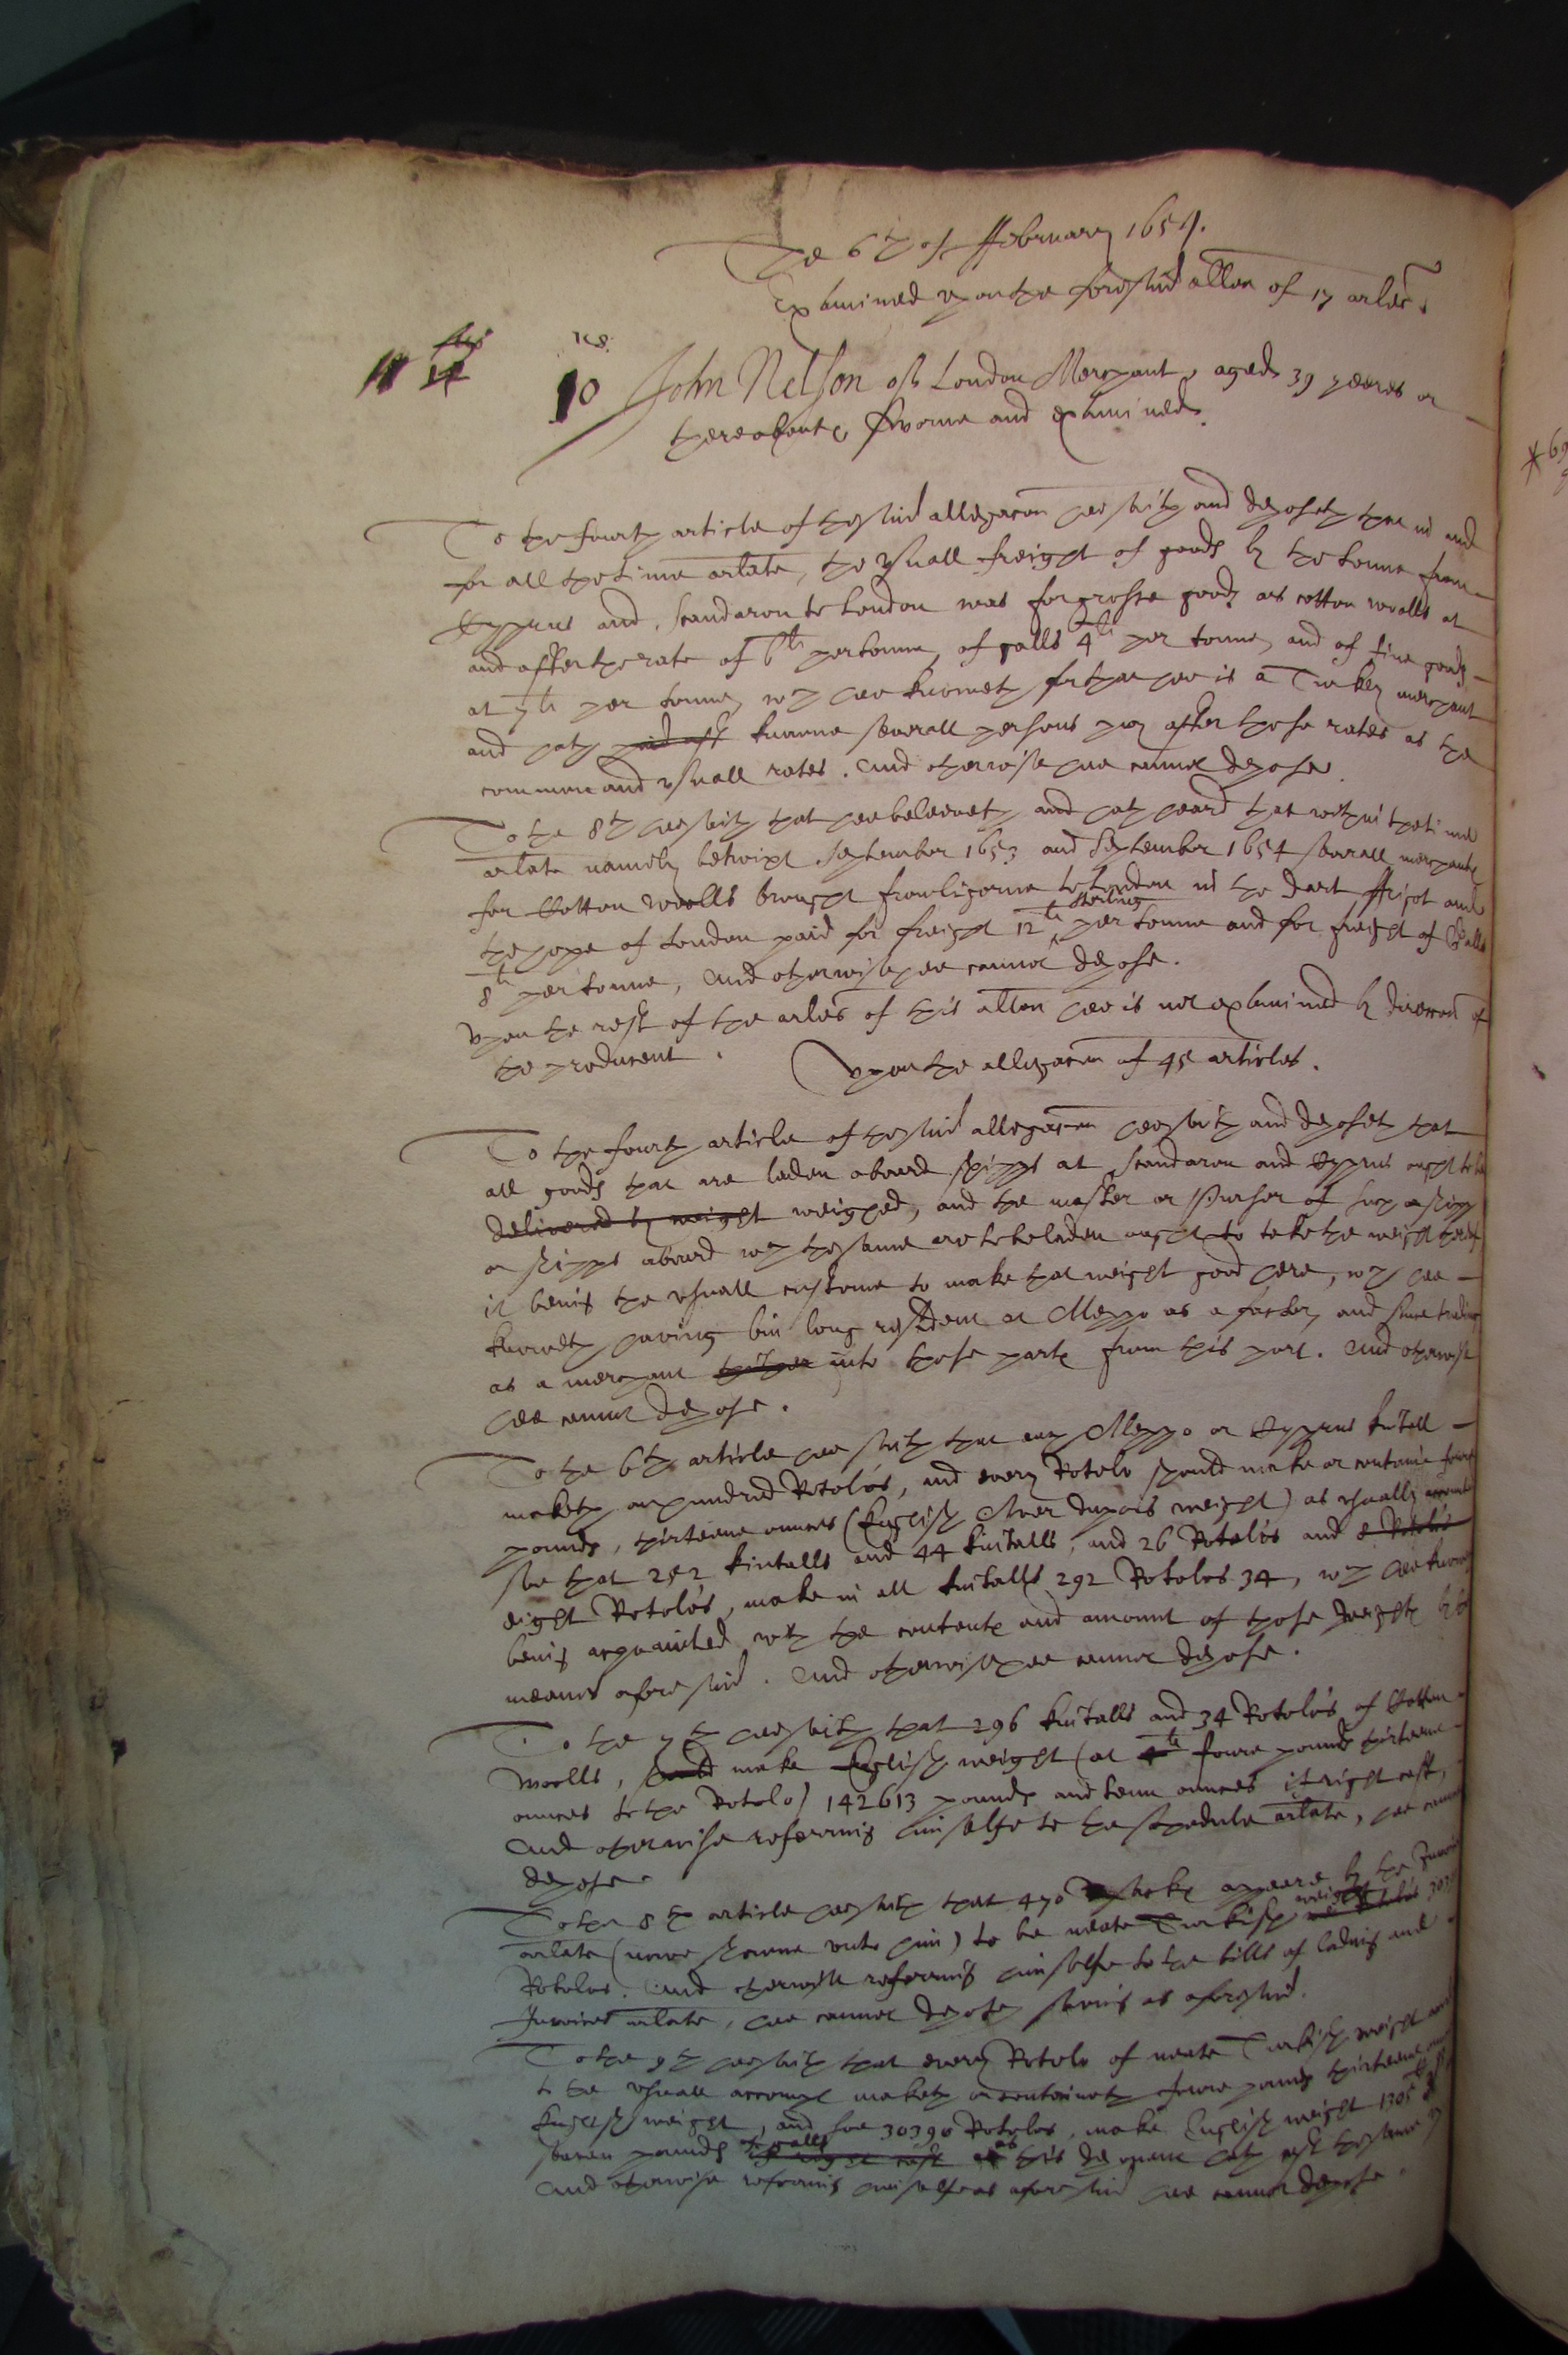 The 6th of ffebruary 1654.
Examined upon the foresaid allon of 17 arles.
10 John Nelson of London Merchant, aged 39 yeeres or
thereabouts sworne and examined.
To the fourth article of the said allegacon hee saith and deposeth that in and
for all the time arlate, the usuall freight of goods by the tonne from
Cyprus and Scandaron to London was for grosse goods as cotton woolls at
and after the rate of 6li per tonne, of galls 4li per tonne, and of fine goods
at 7li per tonne, wch hee knoweth for that hee is a Turkey merchant
and hath paid aft knowne severall persons pay after those rates as the
common and usuall rates. And otherwise hee cannot depose.
To the 8th hee saith that hee beleeveth and hath heard that within the time
arlate namely betwixt September 1653 and September 1654 severall merchants
for Cotton Woolls brought from Ligorne to London in the Dart ffrigot and
the hope of London paid for freight 12li sterling per tonne and for freight of Galls
8li per tonne, And otherwise hee cannot depose.
Upon the rest of the arles of this allon hee is not examined by direccon of
the producent.
Upon the allegacon of 45 articles.
To the fourth article of the said allegacon hee saith and deposeth that
all goods that are laden aboard shipps at Scandaron and Cyprus ought to be
delivered by weight weighed, and the master or Purser of such a shipp
or shipps aboard wch the same are to be laden ought to take the weight thereof
it being the usuall custome to make that weight good here, wch hee
knoweth having bin long resident at Aleppo as a factor, and since trading
as a merchant thither into those parts from this port. And otherwise
hee cannot depose.
To the 6th article hee saith that any Aleppo or Cyprus kintall
maketh an hundred Rotolos, and every Rotolo should make or containe foure
pounds, thirteene ounces (English Aver dupois weight) as usually
soe that 252 kintalls and 44 kintalls, and 26 Rotolos and 8 Rotolos
eight Rotolos, make in all kintalls 292 Rotolos 34, wch hee knoweth
being acquainted with the contents and amount of those weights by the
meanes aforesaid. And otherwise hee cannot depose.
To the 7th hee saith that 296 kintalls and 34 Rotolos of Cotton
Woolls, should make English weight (at 4li foure pounds thirteene
ounces to the Rotolo) 142613 pounds and tenn ounces if right cast,
And otherwise referring himselfe to the schedule arlate, hee cannot
depose.
To the 8th article hee saith that 470 sacks appeare by the Invoice
arlate (nowe showne unto him) to be neate Turkish weight
Rotolos. And otherwise referring himselfe to the bills of lading and
Invoices arlate, hee cannot depose saving as aforesaid.
To the 9th hee saith that every Rotolo of neate Turkish weight
to the usuall accompt maketh or conteineth foure pounds thirteene
English weight, and soe 30390 Rotolos, make English weight
seaven pounds of galls if right cast as this deponent hath cast the same
And otherwise referring himselfe as aforesaid hee cannot depose.